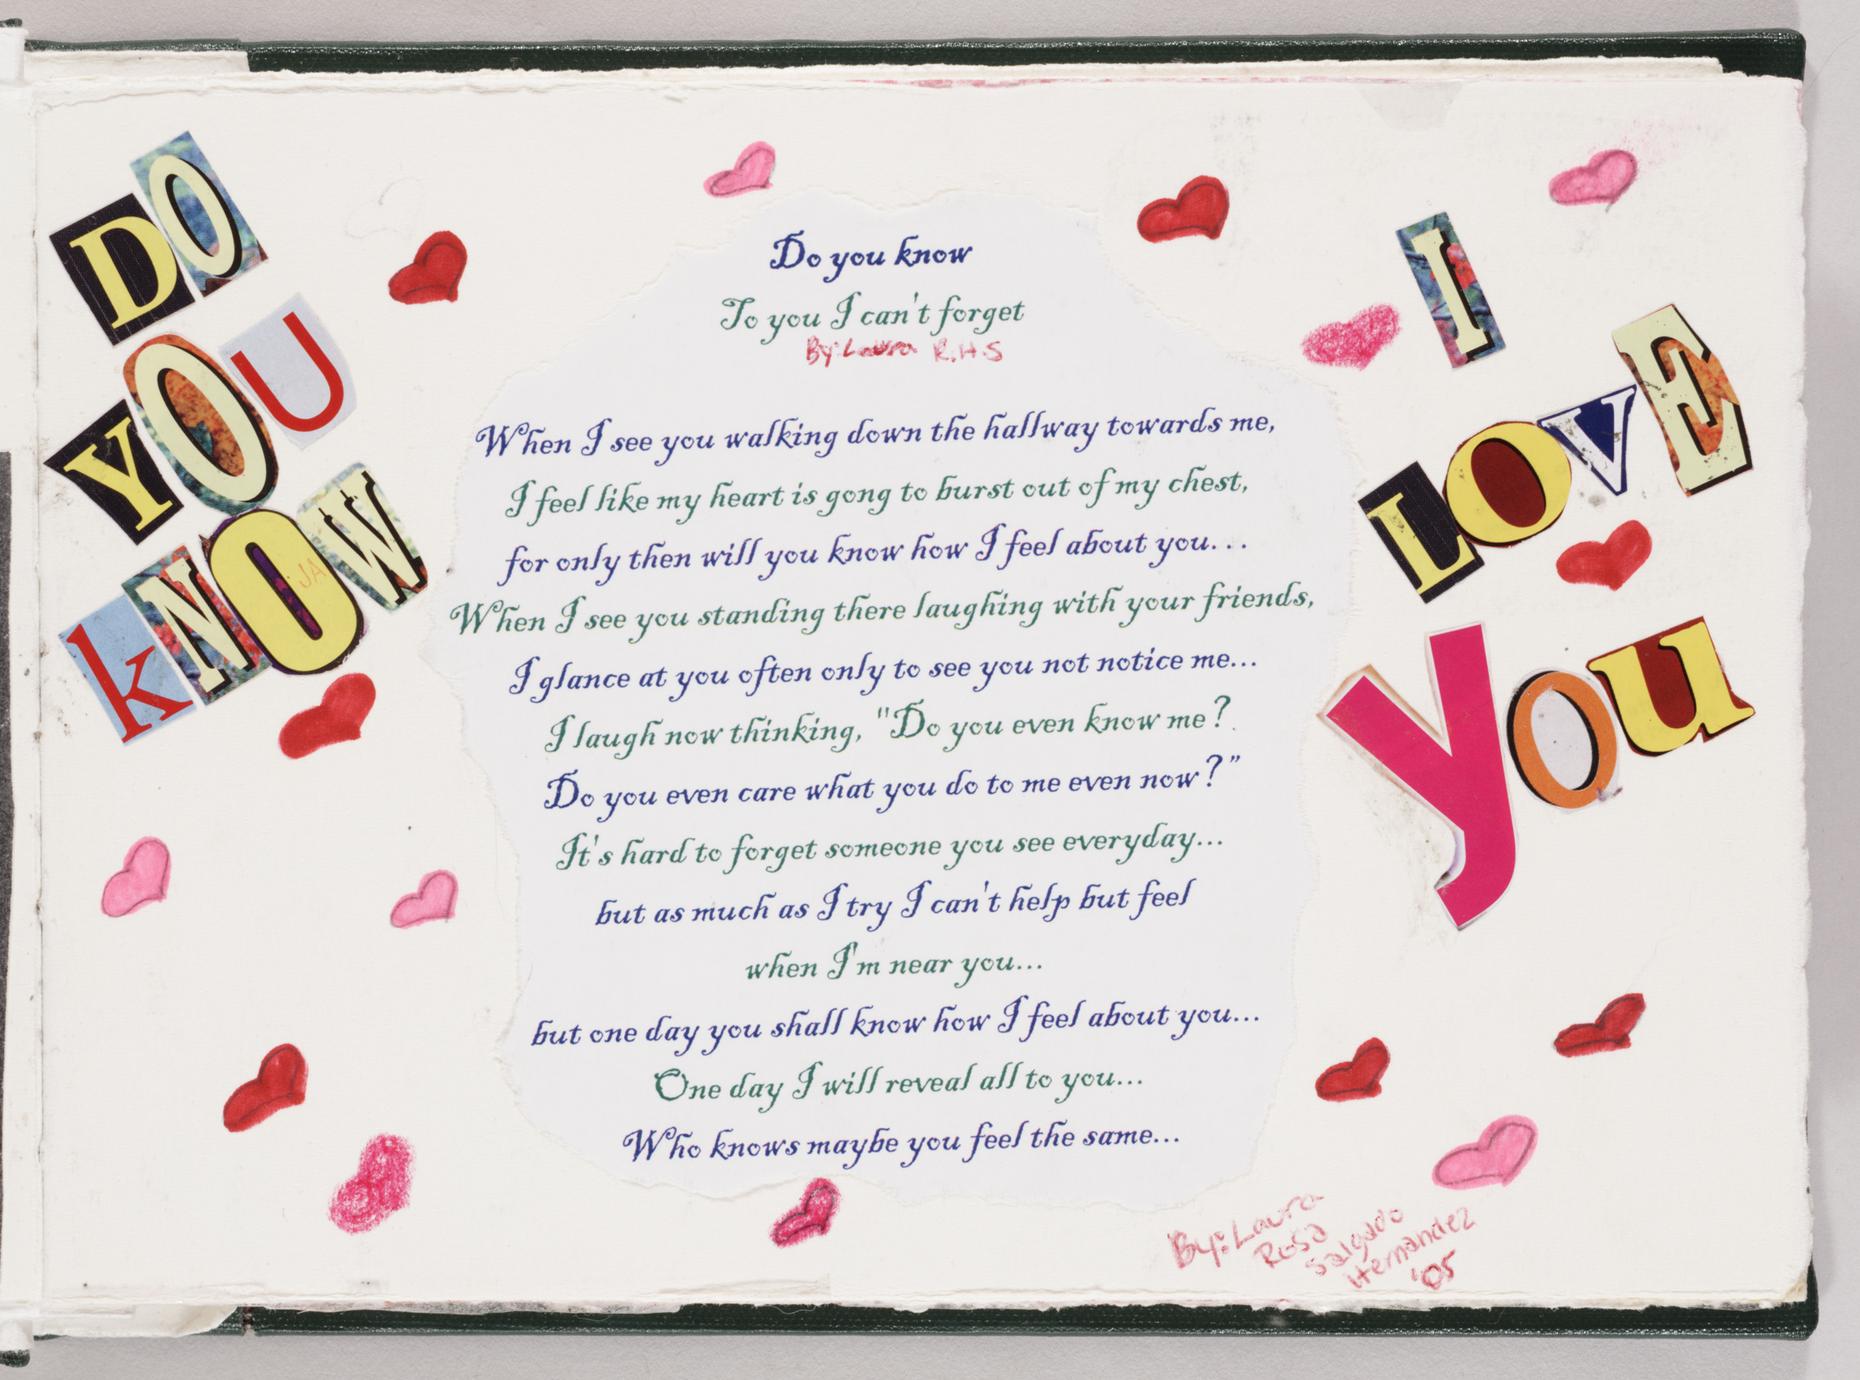 DO
YOU
kNOW
Do you know
To you I can't forget
By: Laura R.H.S
When I see you walking down the hallway towards me,
I feel like my heart is gong to burst out of my chest,
for only then will you know how I feel about you...
When I see you standing there laughing with your friends,
I glance at you often only to see you not notice me...
I laugh now thinking, "Do you even know me?
Do you even care what you do to me even now?"
It's hard to forget someone you see everyday...
but as much as I try I can't help but feel
when I'm near you...
but one day you shall know how I feel about you...
One day I will reveal all to you...
Who knows maybe you feel the same...
I
LOVE
You
By: Laura
Rosa
Salgado
Hernandez
'05